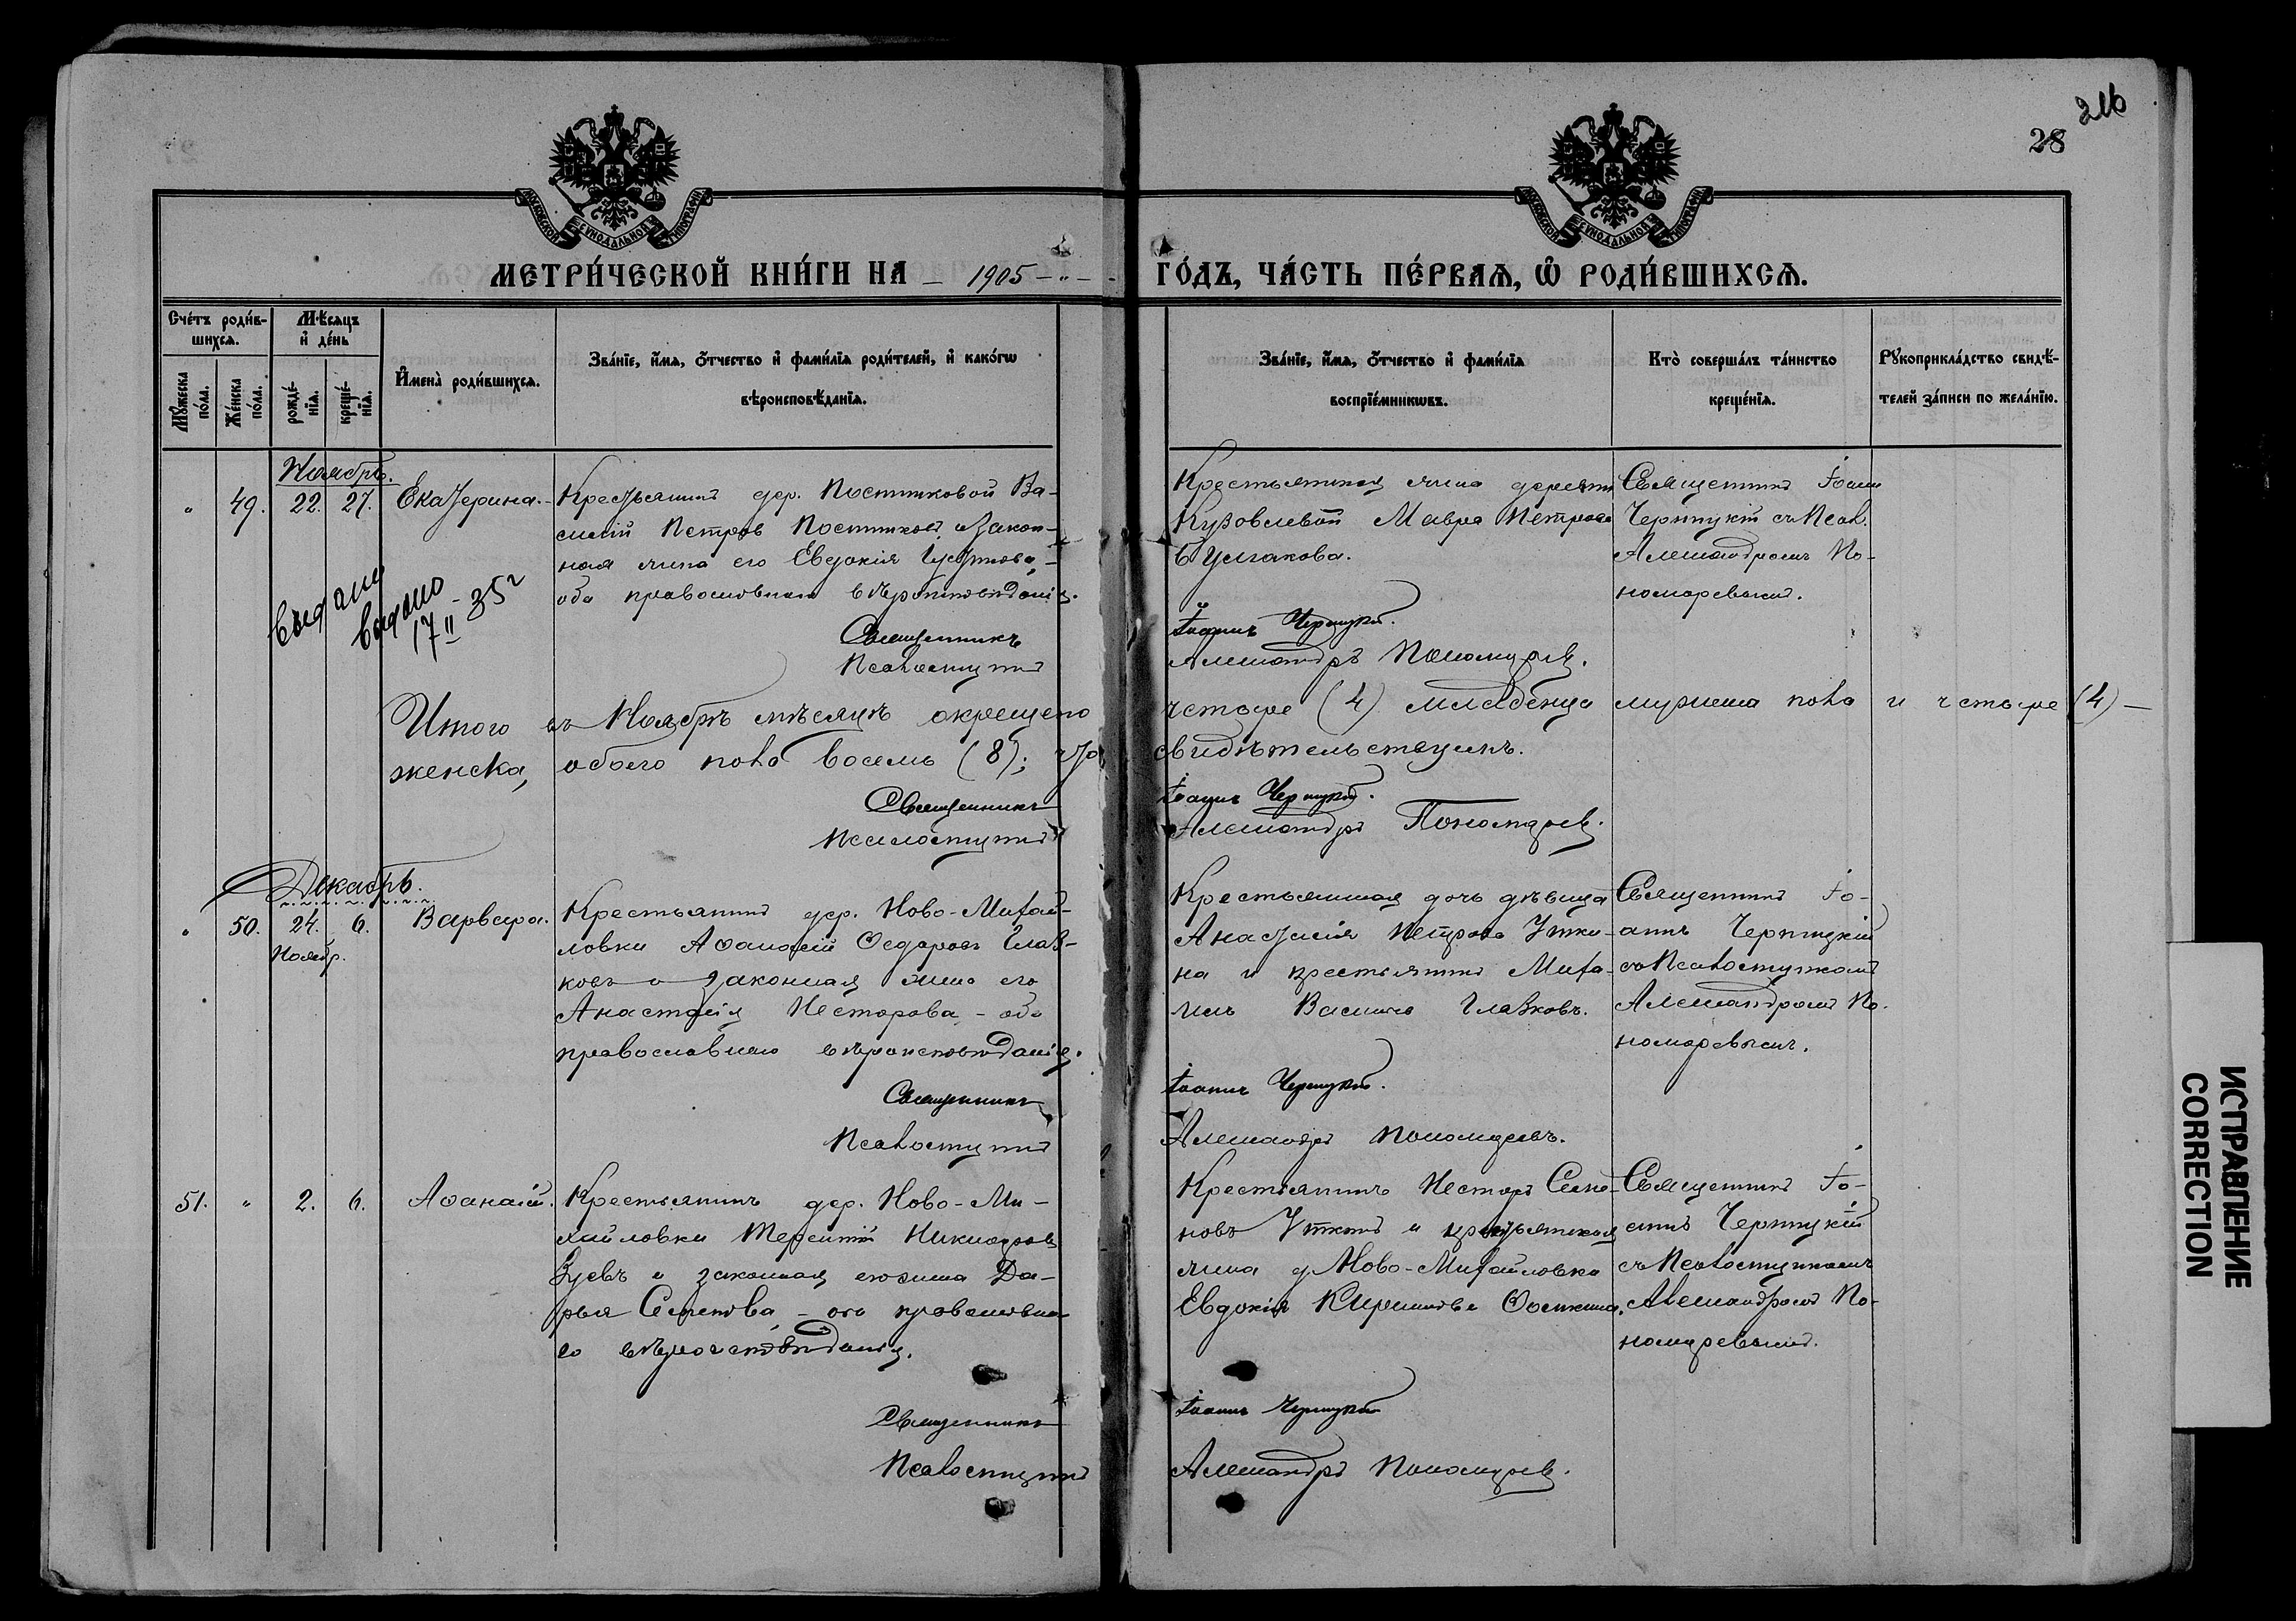 216
28
МОСКОВСКОЙ СУНОДАЛЬНОЙ ТИПОГРАФІИ
МОСКОВСКОЙ СУНОДАЛЬНОЙ ТИПОГРАФІИ
МЕТРИ́ЧЕСКОЙ КНИ́ГИ НА 1905 ГО́ДЪ, ЧА́СТЬ ПЕ́РВАѦ, Ѽ РОДИ́ВШИХСѦ.
Сче́тъ роди́в-
шихсѧ.
Му́жеска по́ла.
Же́нска по́ла.
Мѣ́сѧцъ и҆ де́нь
рожде́-
нїѧ.
креще́-
нїѧ.
И҆мена̀ роди́вшихсѧ.
Зва́нїе, и҆́мѧ, ѻ҆́тчество и҆ фами́лїѧ роди́телей, и҆ како́гѡ
вѣроисповѣ́данїѧ.
Зва́нїе, и҆́мѧ, ѻ҆́тчество и҆ фами́лїѧ
воспрїе́мникѡвъ.
Кто̀ соверша́лъ та́инство
креще́нїѧ.
Рꙋкоприкла́дство свидѣ́-
телей за́писи по жела́нїю.
Ноябрь.
" 49. 22. 27. Екатерина.
Крестьянинъ дер. Постниковой Ва-
силій Петровъ Постниковъ и закон-
ная жена его Евдокія
оба православнаго вѣроисповѣданія.
Священникъ
Псаломщикъ
Крестьянская жена деревни
Кузовлевой Мавра Петрова
Булгакова.
Іоаннъ Черницкій.
Александръ Пономаревъ.
Священникъ Іоаннъ
Черницкій съ Псал.
Александромъ По-
номаревымъ.
выдано
выдано
17 II - 35 г
Итого въ Ноябрѣ мѣсяцѣ окрещено четыре (4) младенца мужеска пола и четыре (4) —
женска, обоего пола восемь (8); что свидѣтельствуемъ.
Священникъ Іоаннъ Черницкій.
Псаломщикъ Александръ Пономаревъ.
Декабрь.
" 50. 24. 6. Варвара.
Ноябр.
Крестьянинъ дер. Ново-Михай-
ловки Аѳанасій Ѳедоровъ Глаз-
ковъ и законная жена его
Анастасія Несторова - оба
православнаго вѣроисповѣданія.
Священникъ
Псаломщикъ
Крестьянская дочь дѣвица
Анастасія Петрова Утки-
на и крестьянинъ Миха-
илъ Васильевъ Глазковъ.
Іоаннъ Черницкій.
Александръ Пономаревъ.
Священникъ Іо-
аннъ Черницкій
съ Псаломщикомъ
Александромъ По-
номаревымъ.
51. " 2. 6. Аѳанасій.
Крестьянинъ дер. Ново-Ми-
хайловки Терентій Никифоровъ
Зуевъ и законная его жена Да-
рья Семенова - оба православна-
го вѣроисповѣданія.
Священникъ
Псаломщикъ
Крестьянинъ Несторъ Семе-
новъ Уткинъ и крестьянская
жена д Ново-Михайловки
Евдокія
Іоаннъ Черницкій
Александръ Пономаревъ.
Священникъ Іо-
аннъ Черницкій
съ Псаломщикомъ
Александромъ По-
номаревымъ.
ИСПРАВЛЕНИЕ
CORRECTION